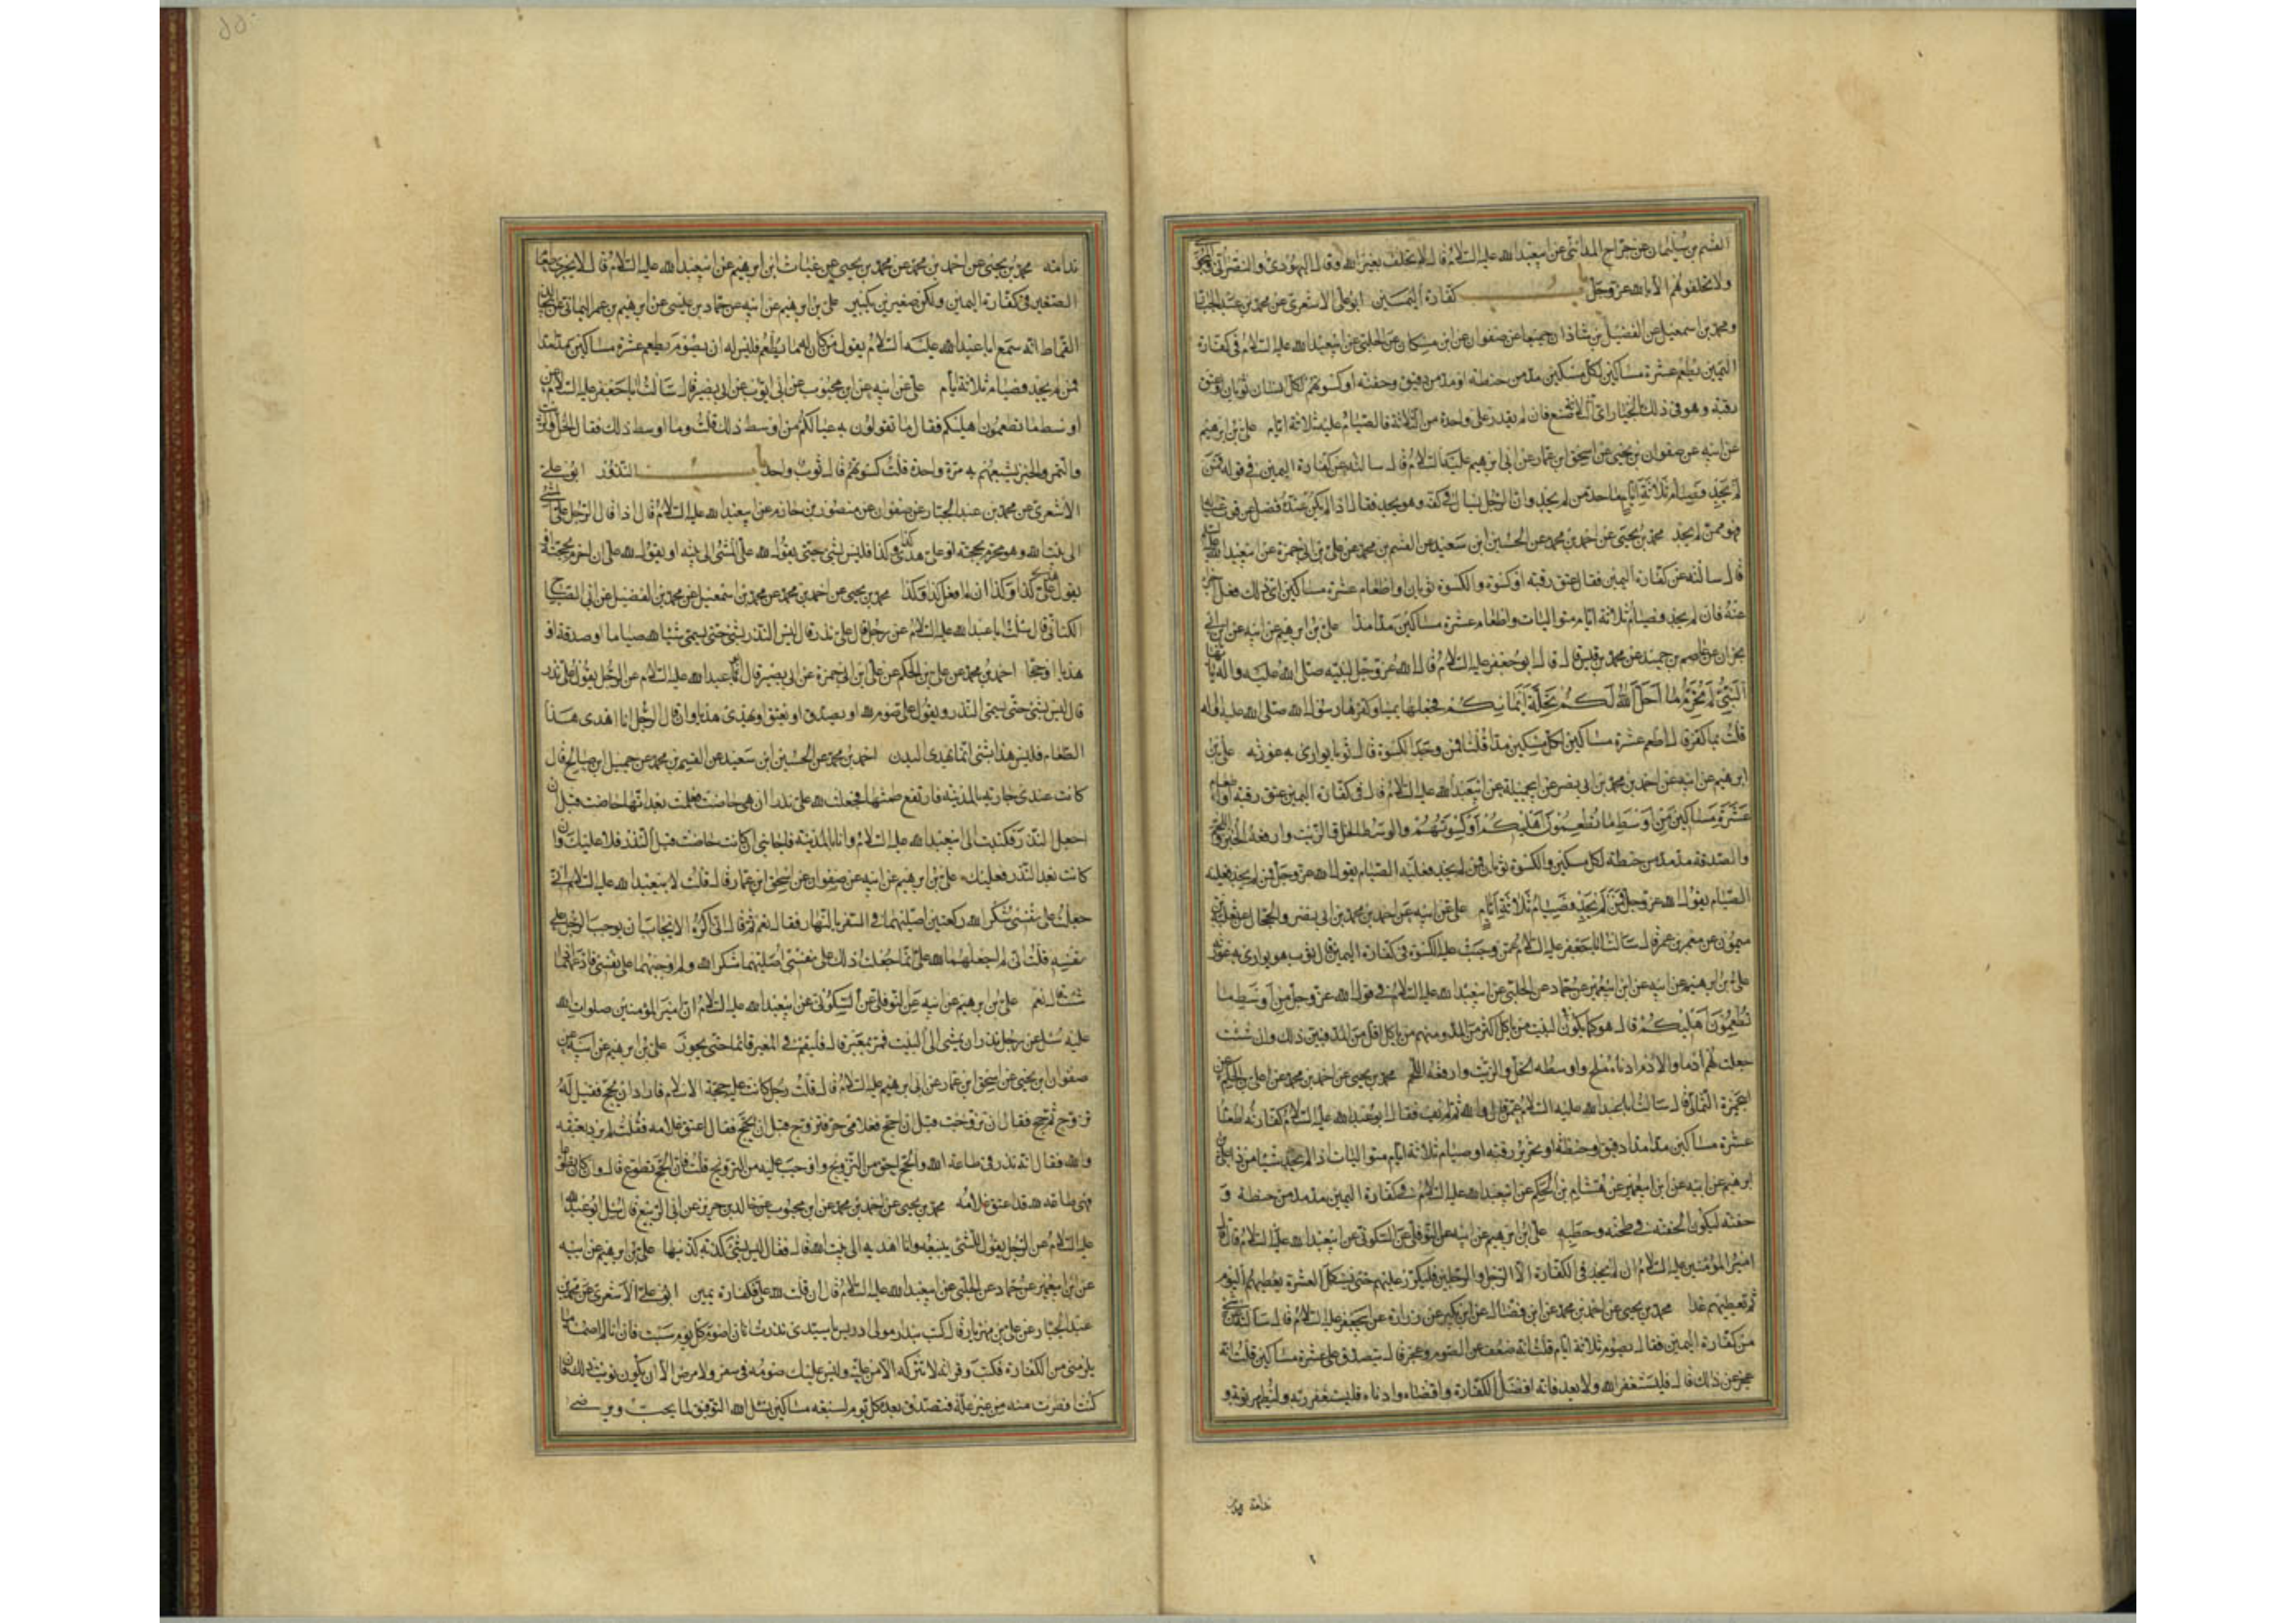 القسم بن سليمان عن جراح المدائني عن ابيعبد الله عليه السلام قال لا يحلف بغير الله وقال اليهودي والنصراني والمجوسي
ولا تحلفوهم الا بالله عز وجل باب كفارة اليمين ابو علي الاشعري عن محمد بن عبد الجبار
ومحمد بن اسمعيل عن الفضيل بن شاذان جميعا عن صفوان عن ابن مسكان عن الحلبي عن ابيعبد الله عليه السلام في كفارة
اليمين يطعم عشرة مساكين لكل مسكين مد من حنطة او مد من دقيق وحفنة او كسوتهم لكل انسان ثوبان او عتق
رقبة وهو في ذلك بالخيار اي الثلاثة صنع فان لم يقدر على واحدة من الثلاثة فالصيام عليه ثلاثة ايام علي بن ابرهيم
عن ابيه عن صفوان بن يحيى عن اسحق ابن عمار عن ابي ابرهيم عليه السلام قال سالته عن كفارة اليمين في قوله فمن
لم يجد فصيام ثلاثة ايام ما حد من لم يجد وان الرجل يسال في كفه وهو يجد فقال اذا لم يكن عنده فضل عن قوت عياله
فهو ممن لم يجد محمد بن يحيى عن احمد بن محمد عن الحسين ابن سعيد عن القسم بن محمد عن علي بن ابي حمزة عن ابيعبد الله عليه السلام
قال سالته عن كفارة اليمين فقال عتق رقبة او كسوة والكسوة ثوبان او اطعام عشرة مساكين اي ذلك فعل اجزا
عنه فان لم يجد فصيام ثلاثة ايام متواليات واطعام عشرة مساكين مدا مدا علي بن ابرهيم عن ابيه عن ابن ابي
نجران عن عاصم بن حميد عن محمد بن قيس قال قال ابو جعفر عليه السلام قال الله عز وجل لنبيه صلى الله عليه واله يا ايها
النبي لم تحرم ما احل الله لك تحلة ايمانكم فجعلها يمينا وكفرها رسول الله صلى الله عليه واله
قلت بما كفر قال اطعم عشرة مساكين لكل مسكين مد قلنا فمن وجد الكسوة قال ثوب يواري به عورته علي بن
ابرهيم عن ابيه عن احمد بن محمد بن ابي نصر عن ابي جميلة عن ابيعبد الله عليه السلام قال في كفارة اليمين عتق رقبة او اطعام
عشرة مساكين من اوسط ما تطعمون اهليكم او كسوتهم والوسط الخل والزيت وارفعه الخبز واللحم
والصدقة مد مد من حنطة لكل مسكين والكسوة ثوبان فمن لم يجد فعليه الصيام يقول الله عز وجل فمن لم يجد فعليه
الصيام يقول الله عز وجل فمن لم يجد فصيام ثلاثة ايام علي عن ابيه عن احمد بن محمد بن ابي نصر والحجال عن ثعلبة بن
ميمون عن معمر بن عمر قال سالت ابا جعفر عليه السلام عمن وجبت عليه الكسوة في كفارة اليمين قال ثوب هو يواري به عورته
علي بن ابرهيم عن ابيه عن ابن ابيعمير عن حماد عن الحلبي عن ابيعبد الله عليه السلام في قول الله عز وجل من اوسط ما
تطعمون اهليكم قال هو كما يكون في البيت من ياكل اكثر من المد ومنهم من ياكل اقل من المد فبين ذلك وان شئت
جعلت لهم ادما والادم ادناه ملح واوسطه الخل والزيت وارفعه اللحم محمد بن يحيى عن احمد بن محمد عن علي بن الحكم عن
ابيحمزة الثمالي قال سالت ابا عبد الله عليه السلام عمن قال والله ثم لم يف فقال ابو عبد الله عليه السلام كفارته اطعام
عشرة مساكين مدا مدا دقيق او حنطة او تحرير رقبة او صيام ثلاثة ايام متواليات اذا لم يجد شيئا من ذا علي بن
ابرهيم عن ابيه عن ابن ابيعمير عن هشام بن الحكم عن ابيعبد الله عليه السلام في كفارة اليمين مد مد من حنطة و
حفنة ليكون الحفنة في طحنه وحطبه علي بن ابرهيم عن ابيه عن النوفلي عن السكوني عن ابيعبد الله عليه السلام قال قال
امير المؤمنين عليه السلام ان لم يجد في الكفارة الا الرجل والرجلين فليكرر عليهم حتى يستكمل العشرة يعطيهم اليوم
ثم يعطيهم غدا محمد بن يحيى عن احمد بن محمد عن ابن فضال عن ابن بكير عن زرارة عن ابيجعفر عليه السلام قال سالته عن شيء
من كفارة اليمين فقال يصوم ثلاثة ايام قلت انه ضعف عن الصوم وعجز قال يتصدق على عشرة مساكين قلت انه
عجز عن ذلك قال فليستغفر الله ولا يعد فانه افضل الكفارة واقصاه وادناه فليستغفر ربه وليظهر توبة و
ندامة
ندامة محمد بن يحيى عن احمد بن محمد عن محمد بن يحيى عن غياث ابن ابرهيم عن ابيعبد الله عليه السلام قال لا يجزي اطعام
الصغير في كفارة اليمين ولكن صغيرين بكبير علي بن ابرهيم عن ابيه عن حماد بن عيسى عن ابرهيم بن عمر اليماني عن ابي خالد
القماط انه سمع ابا عبد الله عليه السلام يقول من كان له ما يطعم فليس له ان يصوم يطعم عشرة مساكين مدا مدا
فمن لم يجد فصيام ثلاثة ايام علي عن ابيه عن ابن محبوب عن ابي ايوب عن ابي بصير قال سالت ابا جعفر عليه السلام عن
اوسط ما تطعمون اهليكم فقال ما تقولون به عيالكم من اوسط ذلك قلت وما اوسط ذلك فقال الخل والزيت
والتمر والخبز يشبعهم به مرة واحدة قلت كسوتهم قال ثوب واحد باب النذور ابو علي
الاشعري عن محمد بن عبد الجبار عن صفوان عن منصور بن حازم عن ابيعبد الله عليه السلام قال اذا قال الرجل علي المشي
الى بيت الله وهو محرم بحجة او علي هدي كذا وكذا فليس بشيء حتى يقول لله علي المشي الى بيته او يقول لله علي ان احرم بحجة او
يقول لله علي هدي كذا وكذا ان لم افعل كذا وكذا محمد بن يحيى عن احمد بن محمد عن محمد بن اسمعيل عن محمد بن الفضيل عن ابي الصباح
الكناني قال سالت ابا عبد الله عليه السلام عن رجل قال علي نذر قال ليس النذر بشيء حتى يسمي شيئا لله صياما او صدقة او
هديا او حجا احمد بن محمد عن علي بن الحكم عن علي ابن ابي حمزة عن ابي بصير قال سالت ابا عبد الله عليه السلام عن الرجل يقول علي نذر
قال ليس بشيء حتى يسمي النذر ويقول علي صوم لله او يصدق او يعتق او يهدي هديا وان قال الرجل انا اهدي هذا
الطعام فليس هذا بشيء انما تهدى البدن احمد بن محمد عن الحسين ابن سعيد عن القسم بن محمد عن جميل ابن صالح قال
كانت عندي جارية بالمدينة فارتفع طمثها فجعلت لله علي نذرا ان هي حاضت فعلمت بعد انها حاضت قبل ان
اجعل النذر فكتبت الى ابيعبد الله عليه السلام وانا بالمدينة فاجابني ان كانت حاضت قبل النذر فلا عليك وان
كانت بعد النذر فعليك علي بن ابرهيم عن ابيه عن صفوان عن اسحق ابن عمار قال قلت لابيعبد الله عليه السلام اني
جعلت على نفسي شكرا لله ركعتين اصليهما في السفر بالنهار فقال نعم ثم قال اني اكره الايجاب ان يوجب الرجل على
نفسه قلت اني لم اجعلهما لله علي انما جعلت ذلك على نفسي اصليهما شكرا لله ولم اوجبهما على نفسي فادعهما اذا
شئت قال نعم علي بن ابرهيم عن ابيه عن النوفلي عن السكوني عن ابيعبد الله عليه السلام ان امير المؤمنين صلوات الله
عليه سئل عن رجل نذر ان يمشي الى البيت فمر بمعبر قال فليقم في المعبر قائما حتى يجوز علي بن ابرهيم عن ابيه عن
صفوان ابن يحيى عن اسحق ابن عمار عن ابي ابرهيم عليه السلام قال قلت رجل كانت عليه حجة الاسلام فاراد ان يحج فقيل له
تزوج ثم حج فقال ان تزوجت قبل ان احج فغلامي حر فتزوج قبل ان يحج فقال اعتق غلامه فقلت لم يرد بعتقه
والله فقال انه نذر في طاعة الله والحج احق من التزويج واوجب عليه من التزويج قلت فان الحج تطوع قال وان كان تطوعا
فهي طاعة لله قد اعتق غلامه محمد بن يحيى عن احمد بن محمد عن ابن محبوب عن خالد بن جرير عن ابي الربيع قال سئل ابو عبد الله
عليه السلام عن الرجل يقول للشيء يبيعه وانا اهديه الى بيت الله قال فقال ليس بشيء كذبة كذبها علي بن ابرهيم عن ابيه
عن ابن ابيعمير عن حماد عن الحلبي عن ابيعبد الله عليه السلام قال ان قلت لله علي فكفارة يمين ابو علي الاشعري عن محمد بن
عبد الجبار عن علي بن مهزيار قال كتب بندار مولى ادريس يا سيدي نذرت ان اصوم كل يوم سبت فان انا لم اصمه ما
يلزمني من الكفارة فكتب وقراته لا تتركه الا من علة وليس عليك صومه في سفر ولا مرض الا ان يكون نويت ذلك فان
كنت افطرت منه من غير علة فتصدق بعدد كل يوم لسبعة مساكين نسئل الله التوفيق لما يحب ويرضى